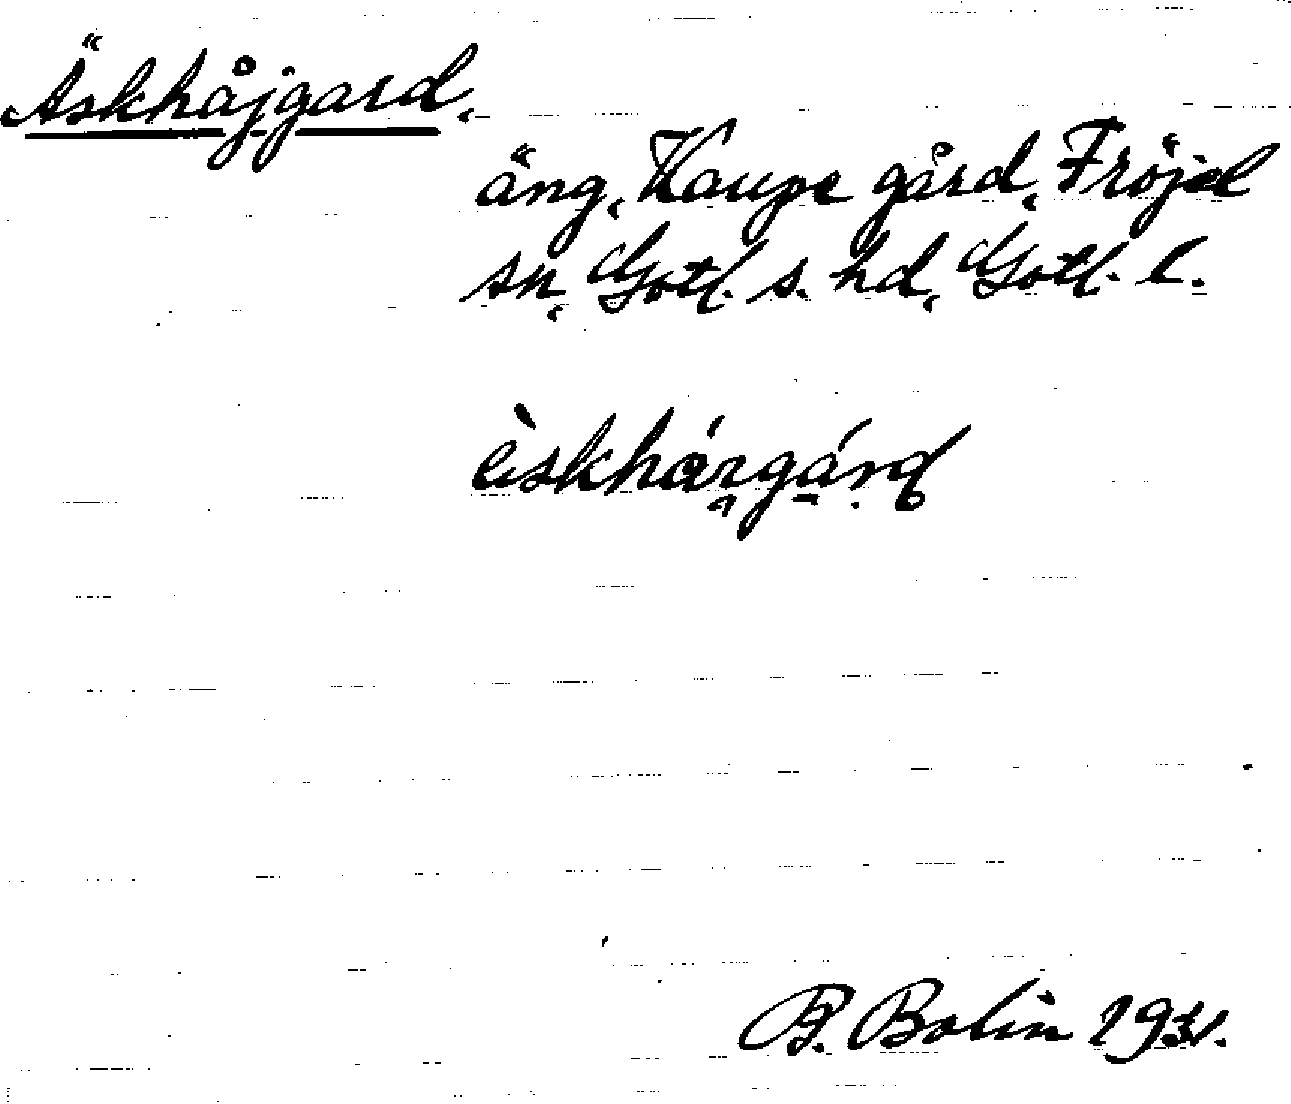 Äskhåjgard,
äng, Kaupe gård, Fröjel
sn, Gotl. s. hd, Gotl. l.
B. Bolin 1931.